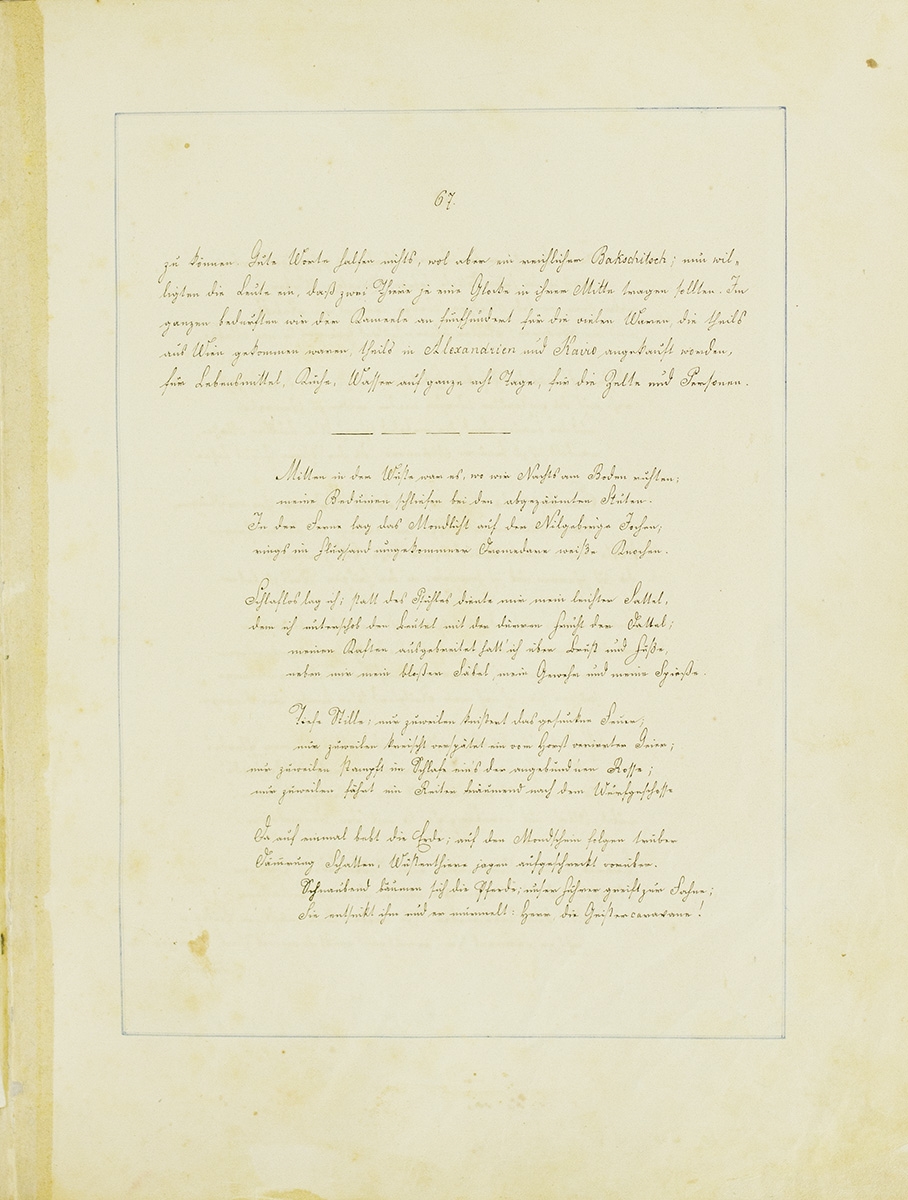 67.
zu können. Gute Worte halfen nichts, wol aber ein reichlicher Bakschitsch; nun wil„
ligten die Leute ein, daß zwei Thiere je eine Glocke in ihrer Mitte tragen sollten. Im
ganzen bedurften wir der Kameele an fünfhundert für die vielen Waren, die theils
aus Wien gekommen waren, theils in Alexandrien und Kairo angekauft worden,
für Lebensmittel, Küche, Wasser auf ganze acht Tage, für die Zelte und Personen.
Mitten in der Wüste war es, wo wir Nachts am Boden ruhten;
meine Beduinen schliefen bei den abgezäumten Stuten.
In der Ferne lag das Mondlicht auf der Nilgebirge Jochen;
rings im Flugsand umgekommner Dromedare weiße Knochen.
Schlaflos lag ich; statt des Pfühles diente mir mein leichter Sattel,
dem ich unterschob den Beutel mit der dürren Frucht der Dattel;
meinen Kaftan ausgebreitet hatt' ich über Brust und Füße,
neben mir mein bloßer Säbel, mein Gewehr und meine Spieße.
Tiefe Stille; nur zuweilen knistert das gesunkne Feuer;
nur zuweilen kreischt verspätet ein vom Horst verirrter Geier;
nur zuweilen stampft im Schlafe eins der angebund'nen Rosse;
nur zuweilen fährt ein Reiter träumend nach dem Wurfgeschosse
Da auf einmal bebt die Erde; auf den Mondschein folgen trüber
Dämrung Schatten, Wüstenthiere jagen aufgeschreckt vorüber.
Schnaubend bäumen sich die Pferde; unser Führer greift zur Fahne;
Sie entsinkt ihm und er murmelt: Herr die Geistercaravane!